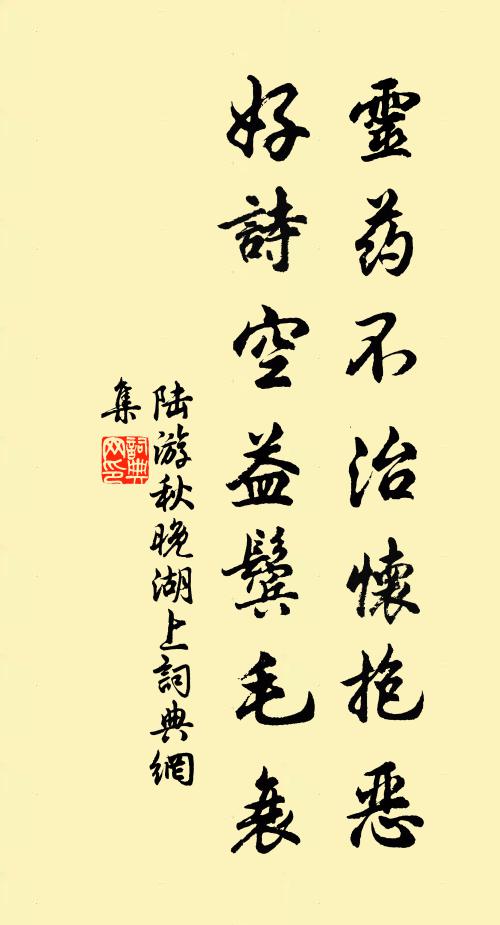 靈药不治懷抱恶
好詩空益鬢毛衰
陆游秋晚湖上詞典網
集
詞典网印